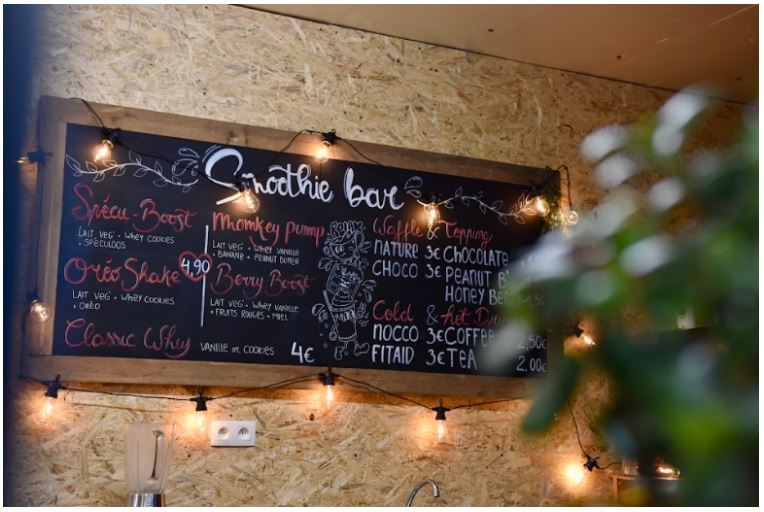 Smoothie bar
Spécu-Boost
LAIT VEG' + WHEY COOKIES
+ SPÉCULOOS
Oréo Shake
4,90
LAIT VEG' + WHEY COOKIES
+ OREO
Classic Whey VANILLE or COOKIES 4€
Momkey pump
LAIT VEG' + WHEY VANILLE
+ BANANE + PEANUT BUTTER
Berry Boost
LAIT VEG' + WHEY VANILLE
+ FRUITS ROUGES + MIEL
Waffle & Topping
NATURE 3€ CHOCOLATE
CHOCO 3€ PEANUT
HONEY
Cold & hot
NOCCO 3€ COFFEE 2,50€
FITAID 3€ TEA 2,00€